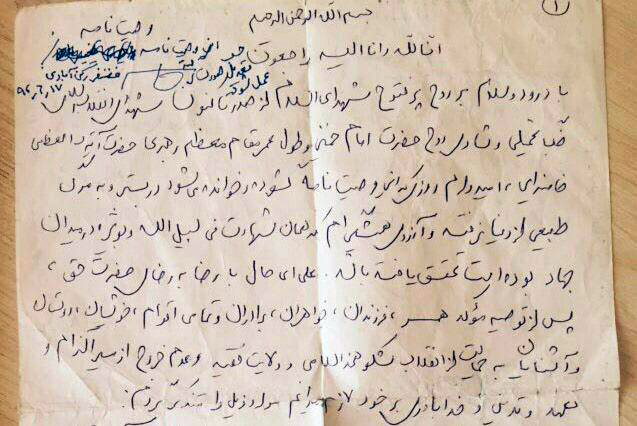 ۱
بسم الله الرحمن الرحیم
وصیت نامه
انا لله و انا الیه راجعون
این وصیت نامه
عمل شود
۹۶,۶,۱۷
با درود و سلام بر روح پر فتوح شهدای اسلام از صدر تا کنون شهدای انقلاب
جنگ تحمیلی و شادی روح حضرت امام خمینی و طول عمر مقام معظم رهبری حضرت آیت الله العظمی
خامنه‌ای، امیدوارم روزی که این وصیت نامه گشوده و خوانده می‌شود در بستر و به مرگ
طبیعی از دنیا نرفته و آرزوی همیشگی‌ام که همان شهادت فی سبیل الله و در میدان
جهاد بوده است تحقق یافته باشد. علی ای حال با رضا به رضای حضرت حق،
پس از توصیه مؤکد همسر، فرزندان، خواهران، برادران و تمامی اقوام، خویشان، دوستان
و آشنایان به حمایت از انقلاب شکوهمند اسلامی و ولایت فقیه و عدم خروج از مسیر
تعهد و تدین و خدا باوری بر خود لازم میدانم موارد ذیل را متذکر گردم: